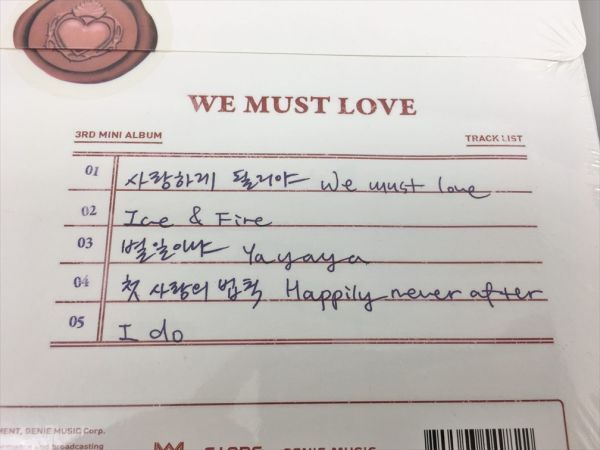 WE MUST LOVE
3RD MINI ALBUM TRACK LIST
01 사랑하게 될 거야 We must love
02 Ice & Fire
03 별일이냐 Yayaya
04 첫 사랑의 법칙 Happily never after
05 I do
MENT, GENIE MUSIC Corp.
and broadcasting
GENIE MUSIC